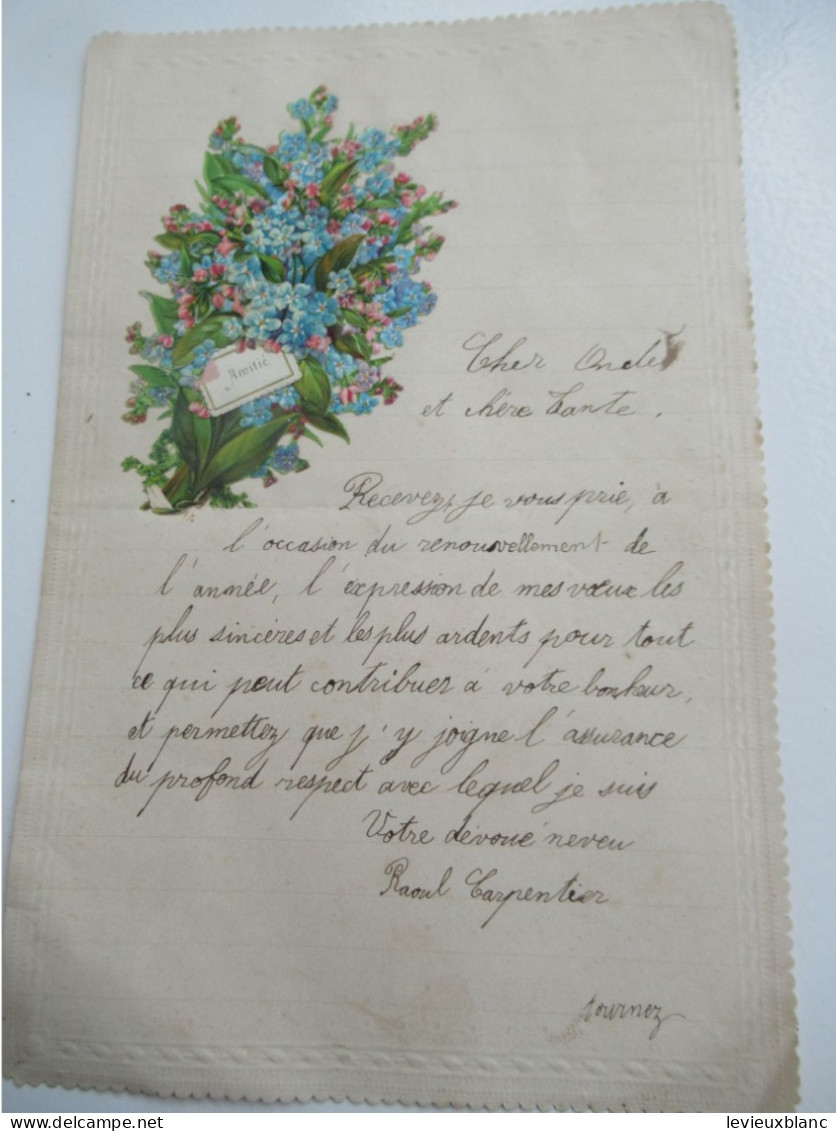 Amitié
Cher Oncle
et chère tante.
Recevez, je vous prie, à
l'occasion du renouvellement de
l'année, l'éxpression de mes vœux les
plus sincères et les plus ardents pour tout
ce qui peut contribuer à votre bonheur,
et permettez que j'y joigne l'assurance
du profond respect avec lequel je suis
Votre dévoué neveu
Raoul Carpentier
tournez
www.delcampe.net
levieuxblanc